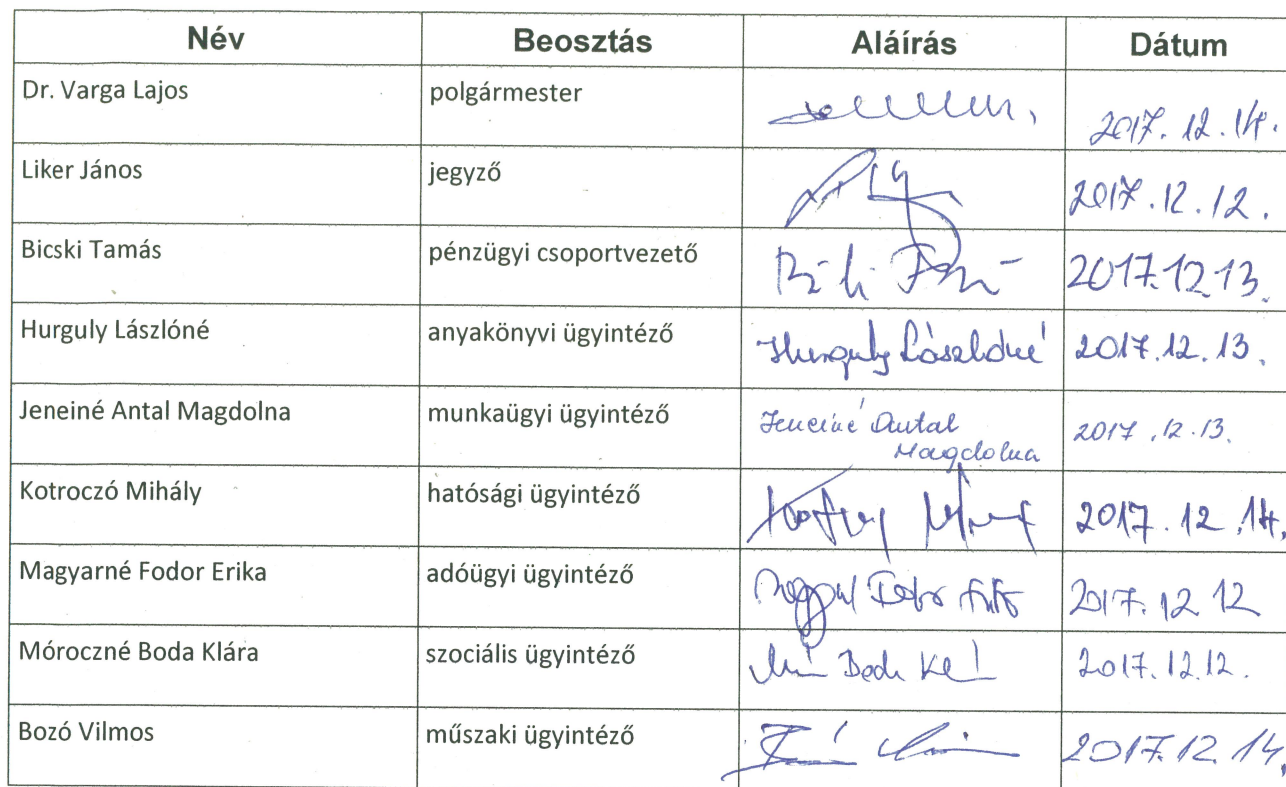 Név Beosztás Aláírás Dátum
Dr. Varga Lajos polgármester 2017. 12. 14.
Liker János jegyző 2017. 12. 12.
Bicski Tamás pénzügyi csoportvezető 2017.12.13.
Hurguly Lászlóné anyakönyvi ügyintéző Hurguly Lászlóné 2017.12.13.
Jeneiné Antal Magdolna munkaügyi ügyintéző Jeneiné Antal
Magdolna 2017.12.13.
Kotroczó Mihály hatósági ügyintéző 2017.12.14.
Magyarné Fodor Erika adóügyi ügyintéző 2017.12.12
Móroczné Boda Klára szociális ügyintéző 2017.12.12.
Bozó Vilmos műszaki ügyintéző 2017.12.14.